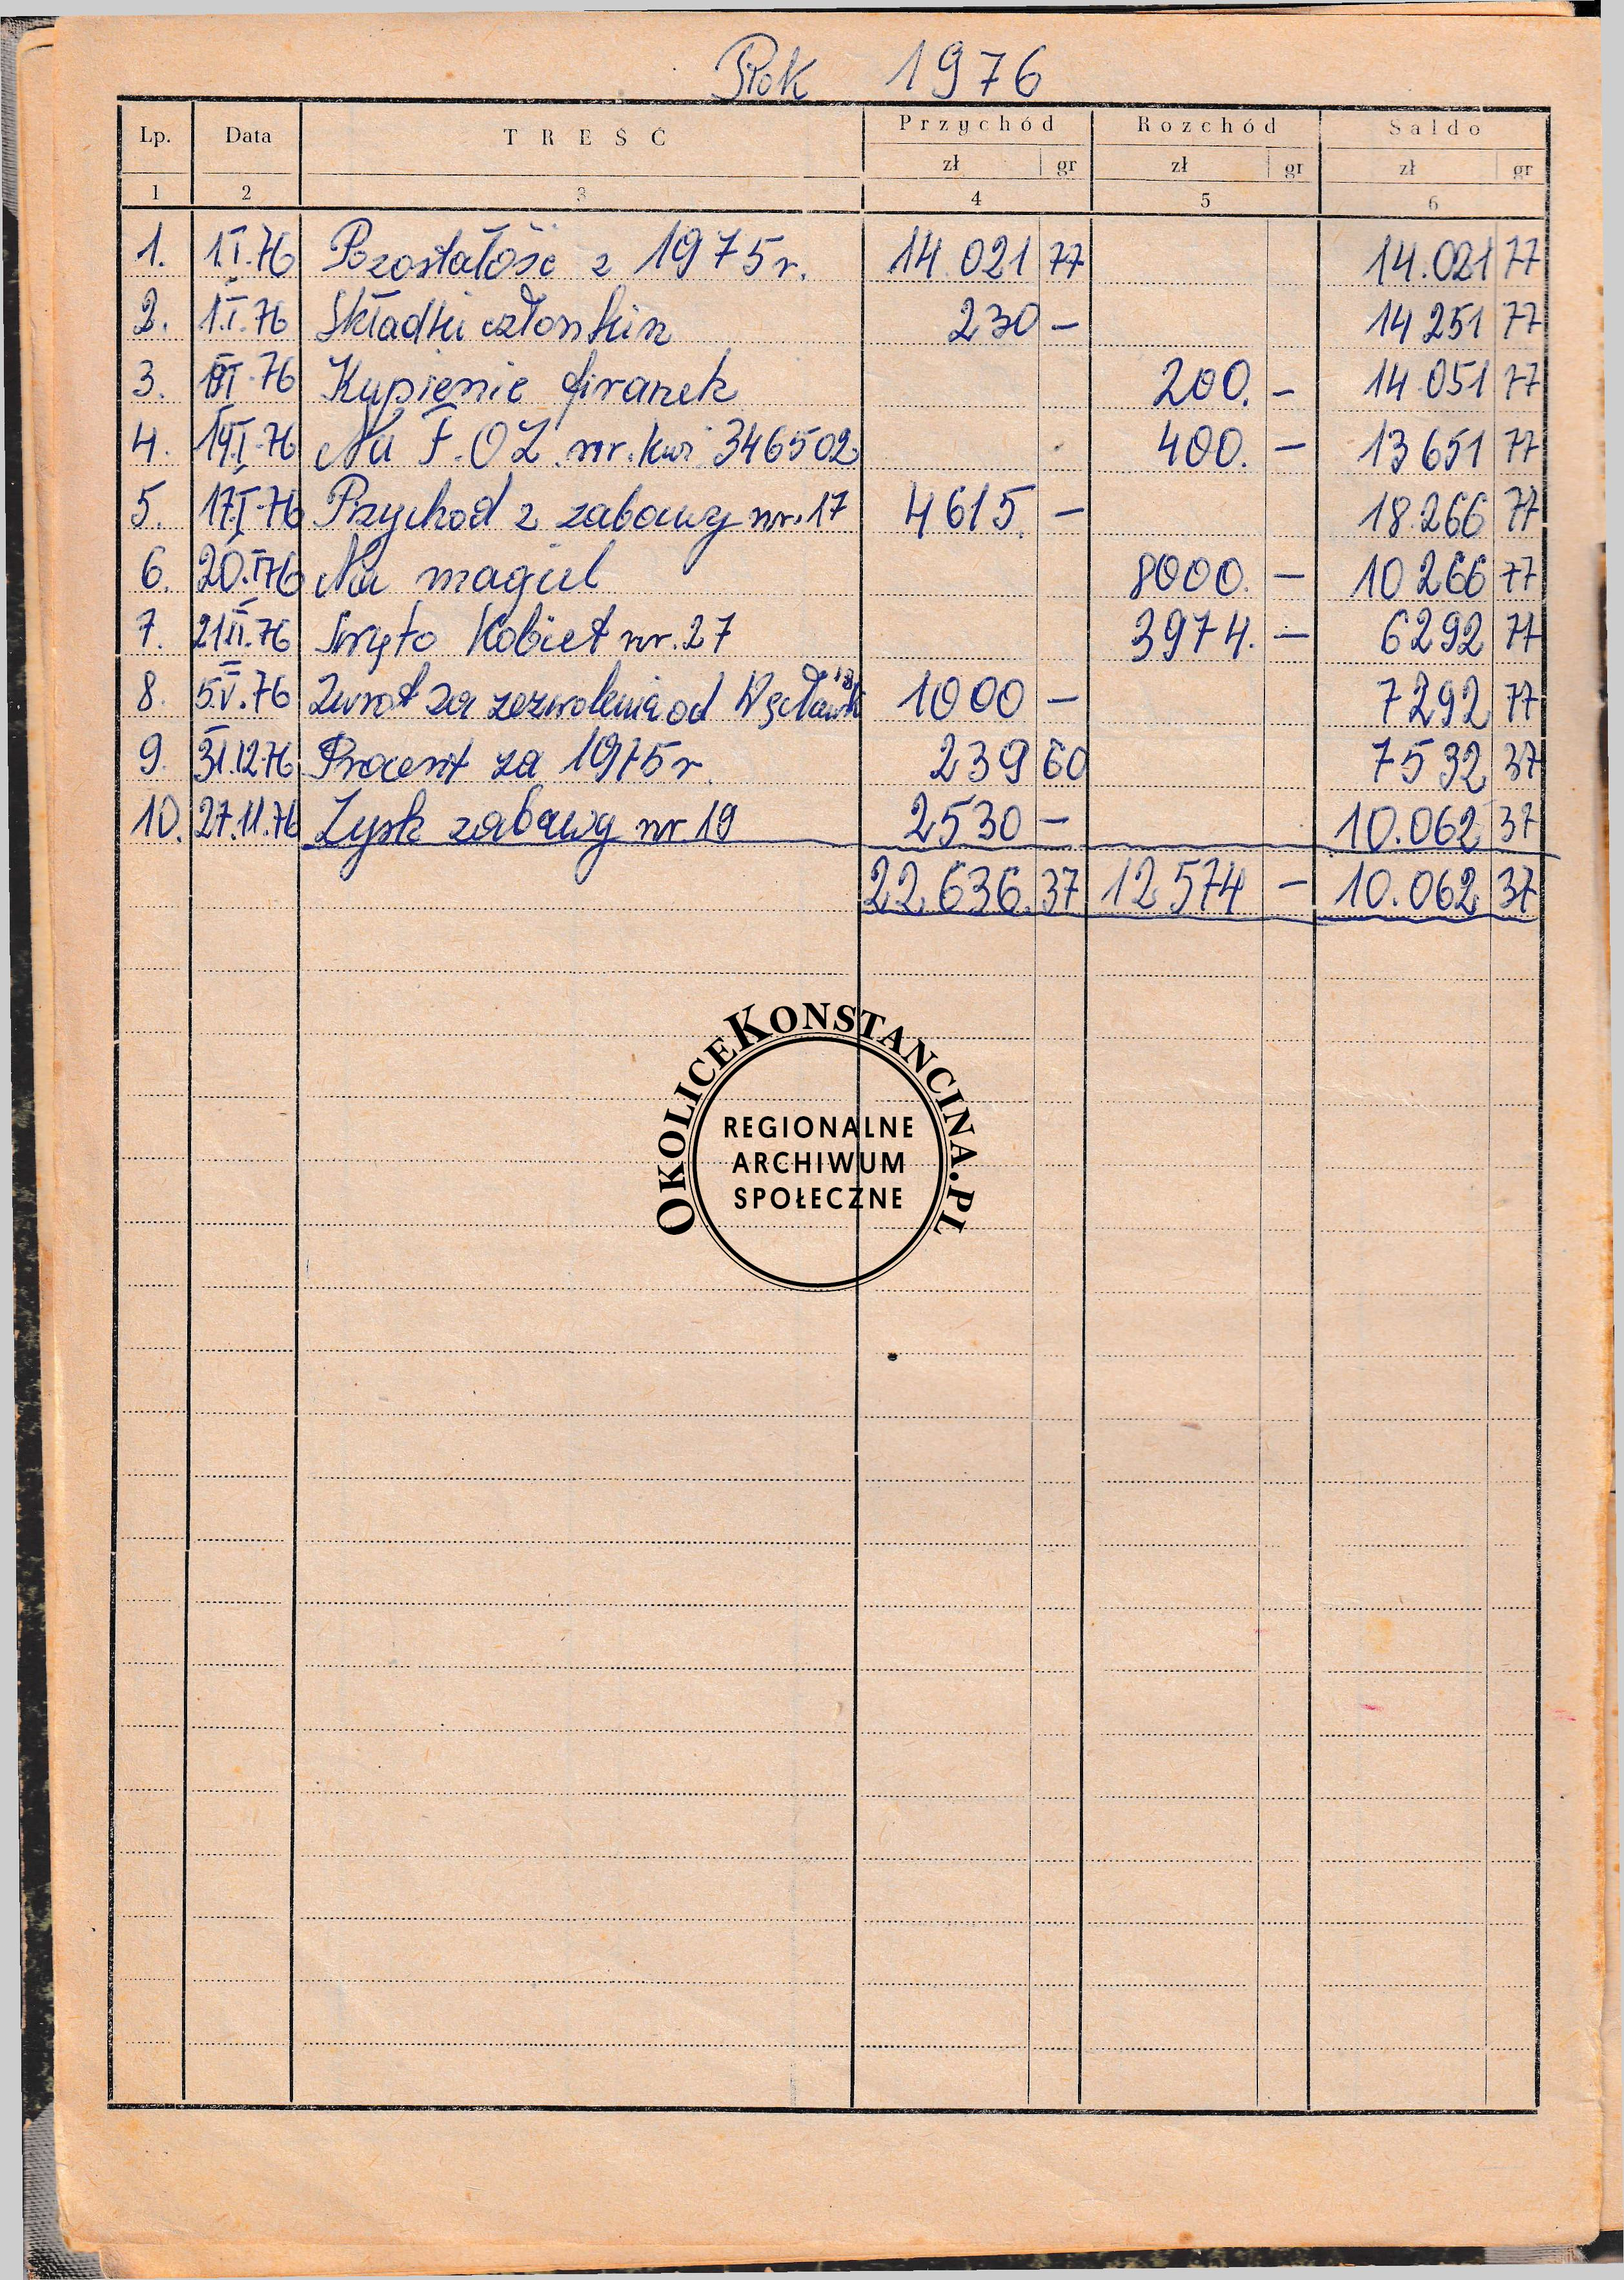 Rok 1976
Lp. Data TREŚĆ Przychód Rozchód Saldo
zł gr zł gr zł gr
1 2 3 4 5 6
1. 1.I.76 Pozostałość z 1975 r. 14.021 77 14.021 77
2. 1.I.76 Składki członkin 230 – 14 251 77
3. I.76 Kupienie firanek 200. – 14 051 77
4. 14.I.76 Na F.O.Z. nr. kwi 346502 400. – 13 651 77
5. 17.I.76 Przychod z zabawy nr. 17 4615. – 18.266 77
6. 20.I.76 Na magiel 8000. – 10 266 77
7. 21.II.76 Swięto Kobiet nr. 27 3974. – 6292 77
8. 5.V.76 Zwrot za zezwolenia od 18 1000 – 7292 77
9. 31.12.76 Procent za 1975 r. 239 60 7532 37
10. 27.11.76 Zysk zabawy nr. 19 2530 – 10.062 37
22.636. 37 12 574 – 10.062 37
OKOLICEKONSTANCINA.PL
REGIONALNE
ARCHIWUM
SPOŁECZNE